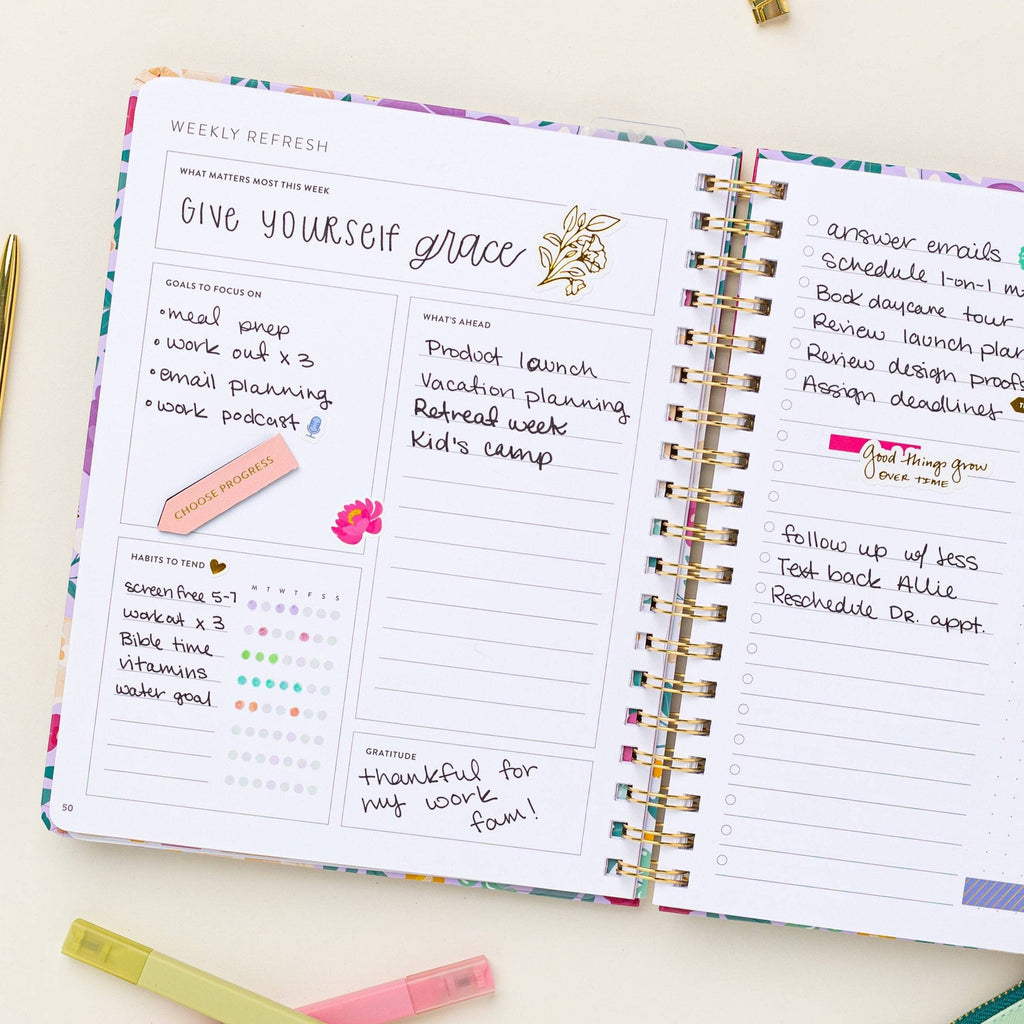 WEEKLY REFRESH
WHAT MATTERS MOST THIS WEEK
GIVE YOURSELF grace
GOALS TO FOCUS ON
•meal prep
•work out x 3
•email planning
•work podcast
CHOOSE PROGRESS
WHAT'S AHEAD
Product launch
Vacation planning
Retreat week
Kid's camp
HABITS TO TEND
M T W T F S S
screen free 5-7
workout x 3
Bible time
vitamins
water goal
GRATITUDE
thankful for
my work
fam!
50
answer emails
Schedule 1-on-1
Book daycare tour
Review launch plan
Review design proofs
Assign deadlines
good things grow
OVER TIME
follow up w/ Jess
Text back Allie
Reschedule DR. appt.